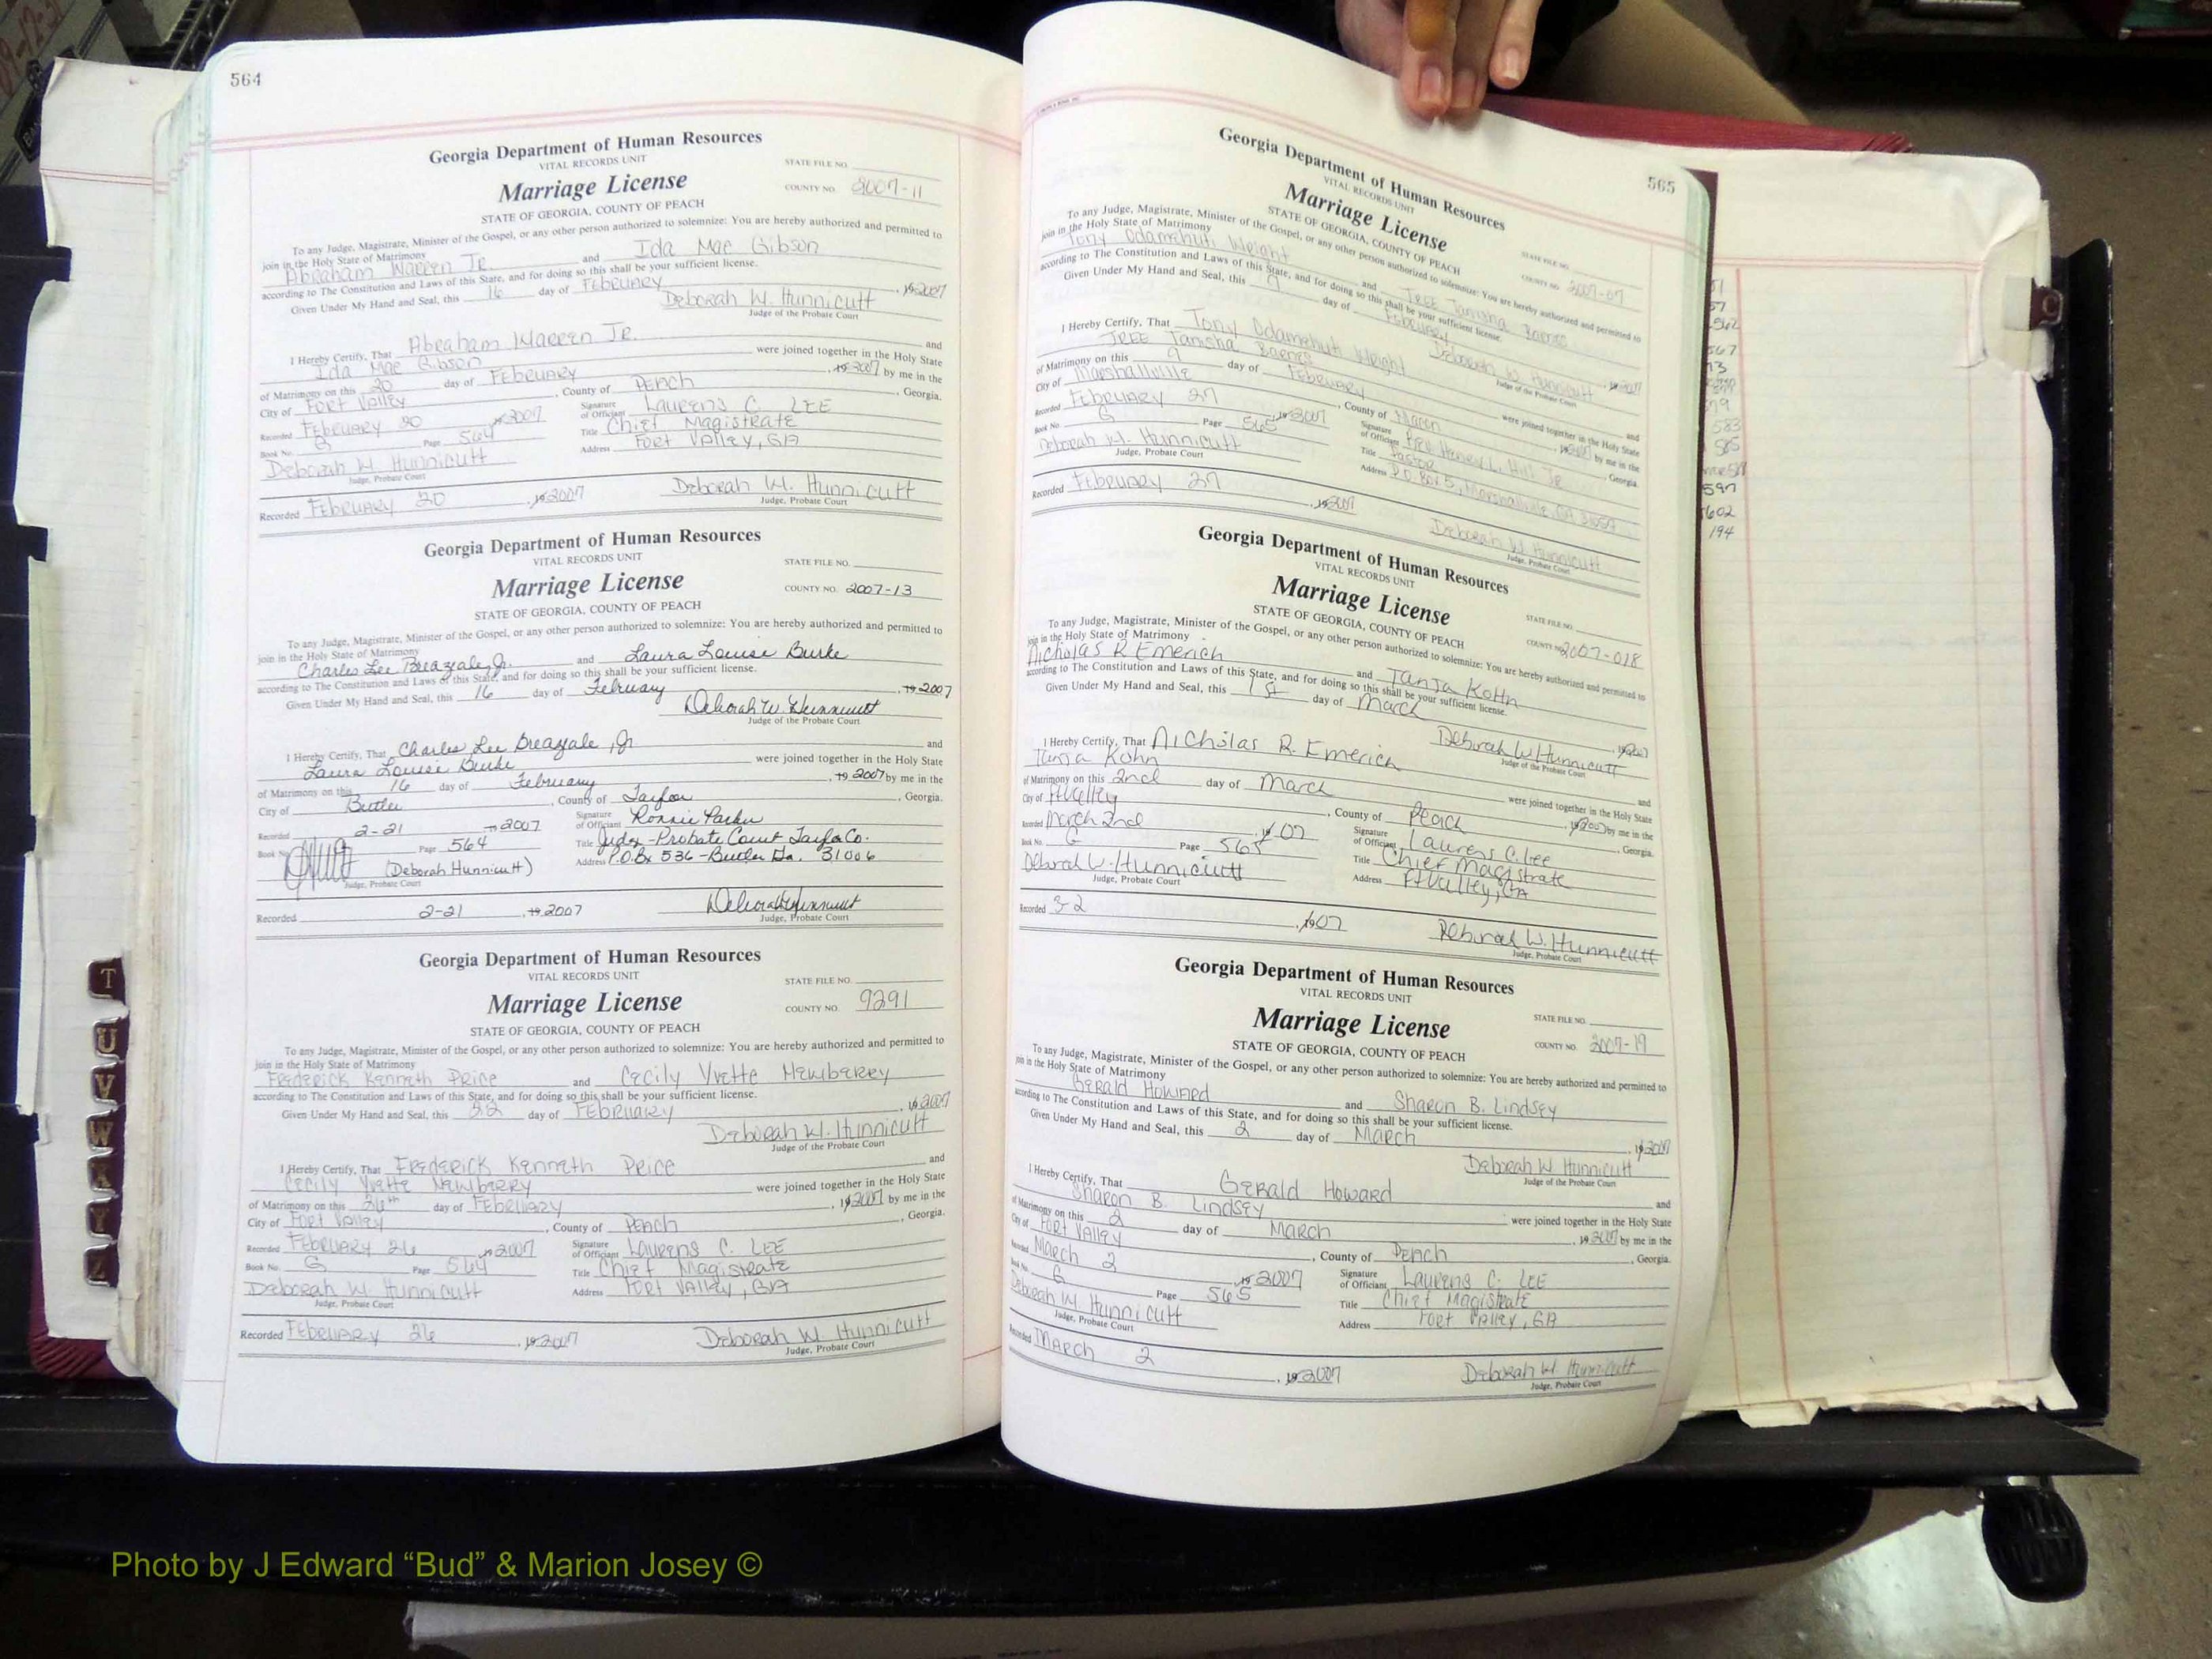 564
Georgia Department of Human Resources
VITAL RECORDS UNIT
STATE FILE NO.
Marriage License
COUNTY NO. 2007-11
STATE OF GEORGIA, COUNTY OF PEACH
To any Judge, Magistrate, Minister of the Gospel, or any other person authorized to solemnize: You are hereby authorized and permitted to
join in the Holy State of Matrimony
Abraham Warren Jr. and Ida Mae Gibson
according to The Constitution and Laws of this State, and for doing so this shall be your sufficient license.
Given Under My Hand and Seal, this 16 day of February, 19 2007
Deborah W. Hunnicutt
Judge of the Probate Court
I Hereby Certify, That Abraham Warren Jr. and
Ida Mae Gibson were joined together in the Holy State
of Matrimony on this 20 day of February, 19 2007 by me in the
City of Fort Valley, County of Peach, Georgia.
Recorded February 20 19 2007 Signature of Officiant Laurens C. Lee
Book No. G Page 564 Title Chief Magistrate
Deborah W. Hunnicutt Address Fort Valley, GA
Judge, Probate Court
Recorded February 20, 19 2007 Deborah W. Hunnicutt
Judge, Probate Court
Georgia Department of Human Resources
VITAL RECORDS UNIT
STATE FILE NO.
Marriage License
COUNTY NO. 2007-13
STATE OF GEORGIA, COUNTY OF PEACH
To any Judge, Magistrate, Minister of the Gospel, or any other person authorized to solemnize: You are hereby authorized and permitted to
join in the Holy State of Matrimony
Charles Lee Breazeale, Jr. and Laura Louise Burke
according to The Constitution and Laws of this State, and for doing so this shall be your sufficient license.
Given Under My Hand and Seal, this 16 day of February, 19 2007
Deborah W Hunnicutt
Judge of the Probate Court
I Hereby Certify, That Charles Lee Breazeale, Jr and
Laura Louise Burke were joined together in the Holy State
of Matrimony on this 16 day of February, 19 2007 by me in the
City of Butler, County of Taylor, Georgia.
Recorded 2-21 19 2007 Signature of Officiant Ronnie Parker
Book No. Page 564 Title Judge - Probate Court Taylor Co.
(Deborah Hunnicutt) Address P.O. Bx 536 - Butler Ga. 31006
Judge, Probate Court
Recorded 2-21, 19 2007 Deborah W Hunnicutt
Judge, Probate Court
Georgia Department of Human Resources
VITAL RECORDS UNIT
STATE FILE NO.
Marriage License
COUNTY NO. 9291
STATE OF GEORGIA, COUNTY OF PEACH
To any Judge, Magistrate, Minister of the Gospel, or any other person authorized to solemnize: You are hereby authorized and permitted to
join in the Holy State of Matrimony
Frederick Kenneth Price and Cecily Yvette Newberry
according to The Constitution and Laws of this State, and for doing so this shall be your sufficient license.
Given Under My Hand and Seal, this 22 day of February, 19 2007
Deborah W. Hunnicutt
Judge of the Probate Court
I Hereby Certify, That Frederick Kenneth Price and
Cecily Yvette Newberry were joined together in the Holy State
of Matrimony on this 26th day of February, 19 2007 by me in the
City of Fort Valley, County of Peach, Georgia.
Recorded February 26 19 2007 Signature of Officiant Laurens C. Lee
Book No. G Page 564 Title Chief Magistrate
Deborah W. Hunnicutt Address Fort Valley, GA
Judge, Probate Court
Recorded February 26, 19 2007 Deborah W. Hunnicutt
Judge, Probate Court
565
Georgia Department of Human Resources
VITAL RECORDS UNIT
Marriage License
STATE FILE NO.
STATE OF GEORGIA, COUNTY OF PEACH
COUNTY NO. 2007-07
To any Judge, Magistrate, Minister of the Gospel, or any other person authorized to solemnize: You are hereby authorized and permitted to
join in the Holy State of Matrimony
Tony Odamehuti Wright and Tree Tanisha Barnes
according to The Constitution and Laws of this State, and for doing so this shall be your sufficient license.
Given Under My Hand and Seal, this 9 day of February, 19 2007
Deborah W. Hunnicutt
Judge of the Probate Court
I Hereby Certify, That Tony Odamehuti Wright and
Tree Tanisha Barnes were joined together in the Holy State
of Matrimony on this 9 day of February, 19 2007 by me in the
City of Marshallville, County of Macon, Georgia.
Recorded February 27, 19 2007 Signature of Officiant Rev. Harvey L. Hill Jr
Book No. G Page 565 Title Pastor
Deborah W. Hunnicutt Address P.O. Box 5, Marshallville, GA 31057
Judge, Probate Court
Recorded February 27, 19 2007 Deborah W. Hunnicutt
Judge, Probate Court
Georgia Department of Human Resources
VITAL RECORDS UNIT
Marriage License
STATE FILE NO.
STATE OF GEORGIA, COUNTY OF PEACH
COUNTY NO. 2007-018
To any Judge, Magistrate, Minister of the Gospel, or any other person authorized to solemnize: You are hereby authorized and permitted to
join in the Holy State of Matrimony
Nicholas R Emerich and Tanja Kohn
according to The Constitution and Laws of this State, and for doing so this shall be your sufficient license.
Given Under My Hand and Seal, this 1st day of March, 2007
Deborah W. Hunnicutt
Judge of the Probate Court
I Hereby Certify, That Nicholas R. Emerich and
Tanja Kohn were joined together in the Holy State
of Matrimony on this 2nd day of March, 19 2007 by me in the
City of Ft Valley, County of Peach, Georgia.
Recorded March 2nd 19 07 Signature of Officiant Laurens C. Lee
Book No. G Page 565 Title Chief Magistrate
Deborah W. Hunnicutt Address Ft Valley, GA
Judge, Probate Court
Recorded 3-2, 19 07 Deborah W. Hunnicutt
Judge, Probate Court
Georgia Department of Human Resources
VITAL RECORDS UNIT
STATE FILE NO.
Marriage License
COUNTY NO. 2007-19
STATE OF GEORGIA, COUNTY OF PEACH
To any Judge, Magistrate, Minister of the Gospel, or any other person authorized to solemnize: You are hereby authorized and permitted to
join in the Holy State of Matrimony
Gerald Howard and Sharon B. Lindsey
according to The Constitution and Laws of this State, and for doing so this shall be your sufficient license.
Given Under My Hand and Seal, this 2 day of March, 19 2007
Deborah W. Hunnicutt
Judge of the Probate Court
I Hereby Certify, That Gerald Howard and
Sharon B. Lindsey were joined together in the Holy State
of Matrimony on this 2 day of March, 19 2007 by me in the
City of Fort Valley, County of Peach, Georgia.
Recorded March 2 19 2007 Signature of Officiant Laurens C. Lee
Book No. G Page 565 Title Chief Magistrate
Deborah W. Hunnicutt Address Fort Valley, GA
Judge, Probate Court
Recorded March 2, 19 2007 Deborah W. Hunnicutt
Judge, Probate Court
567
583
585
597
602
194
T
U
V
W
X
Y
Z
Photo by J Edward “Bud” & Marion Josey ©